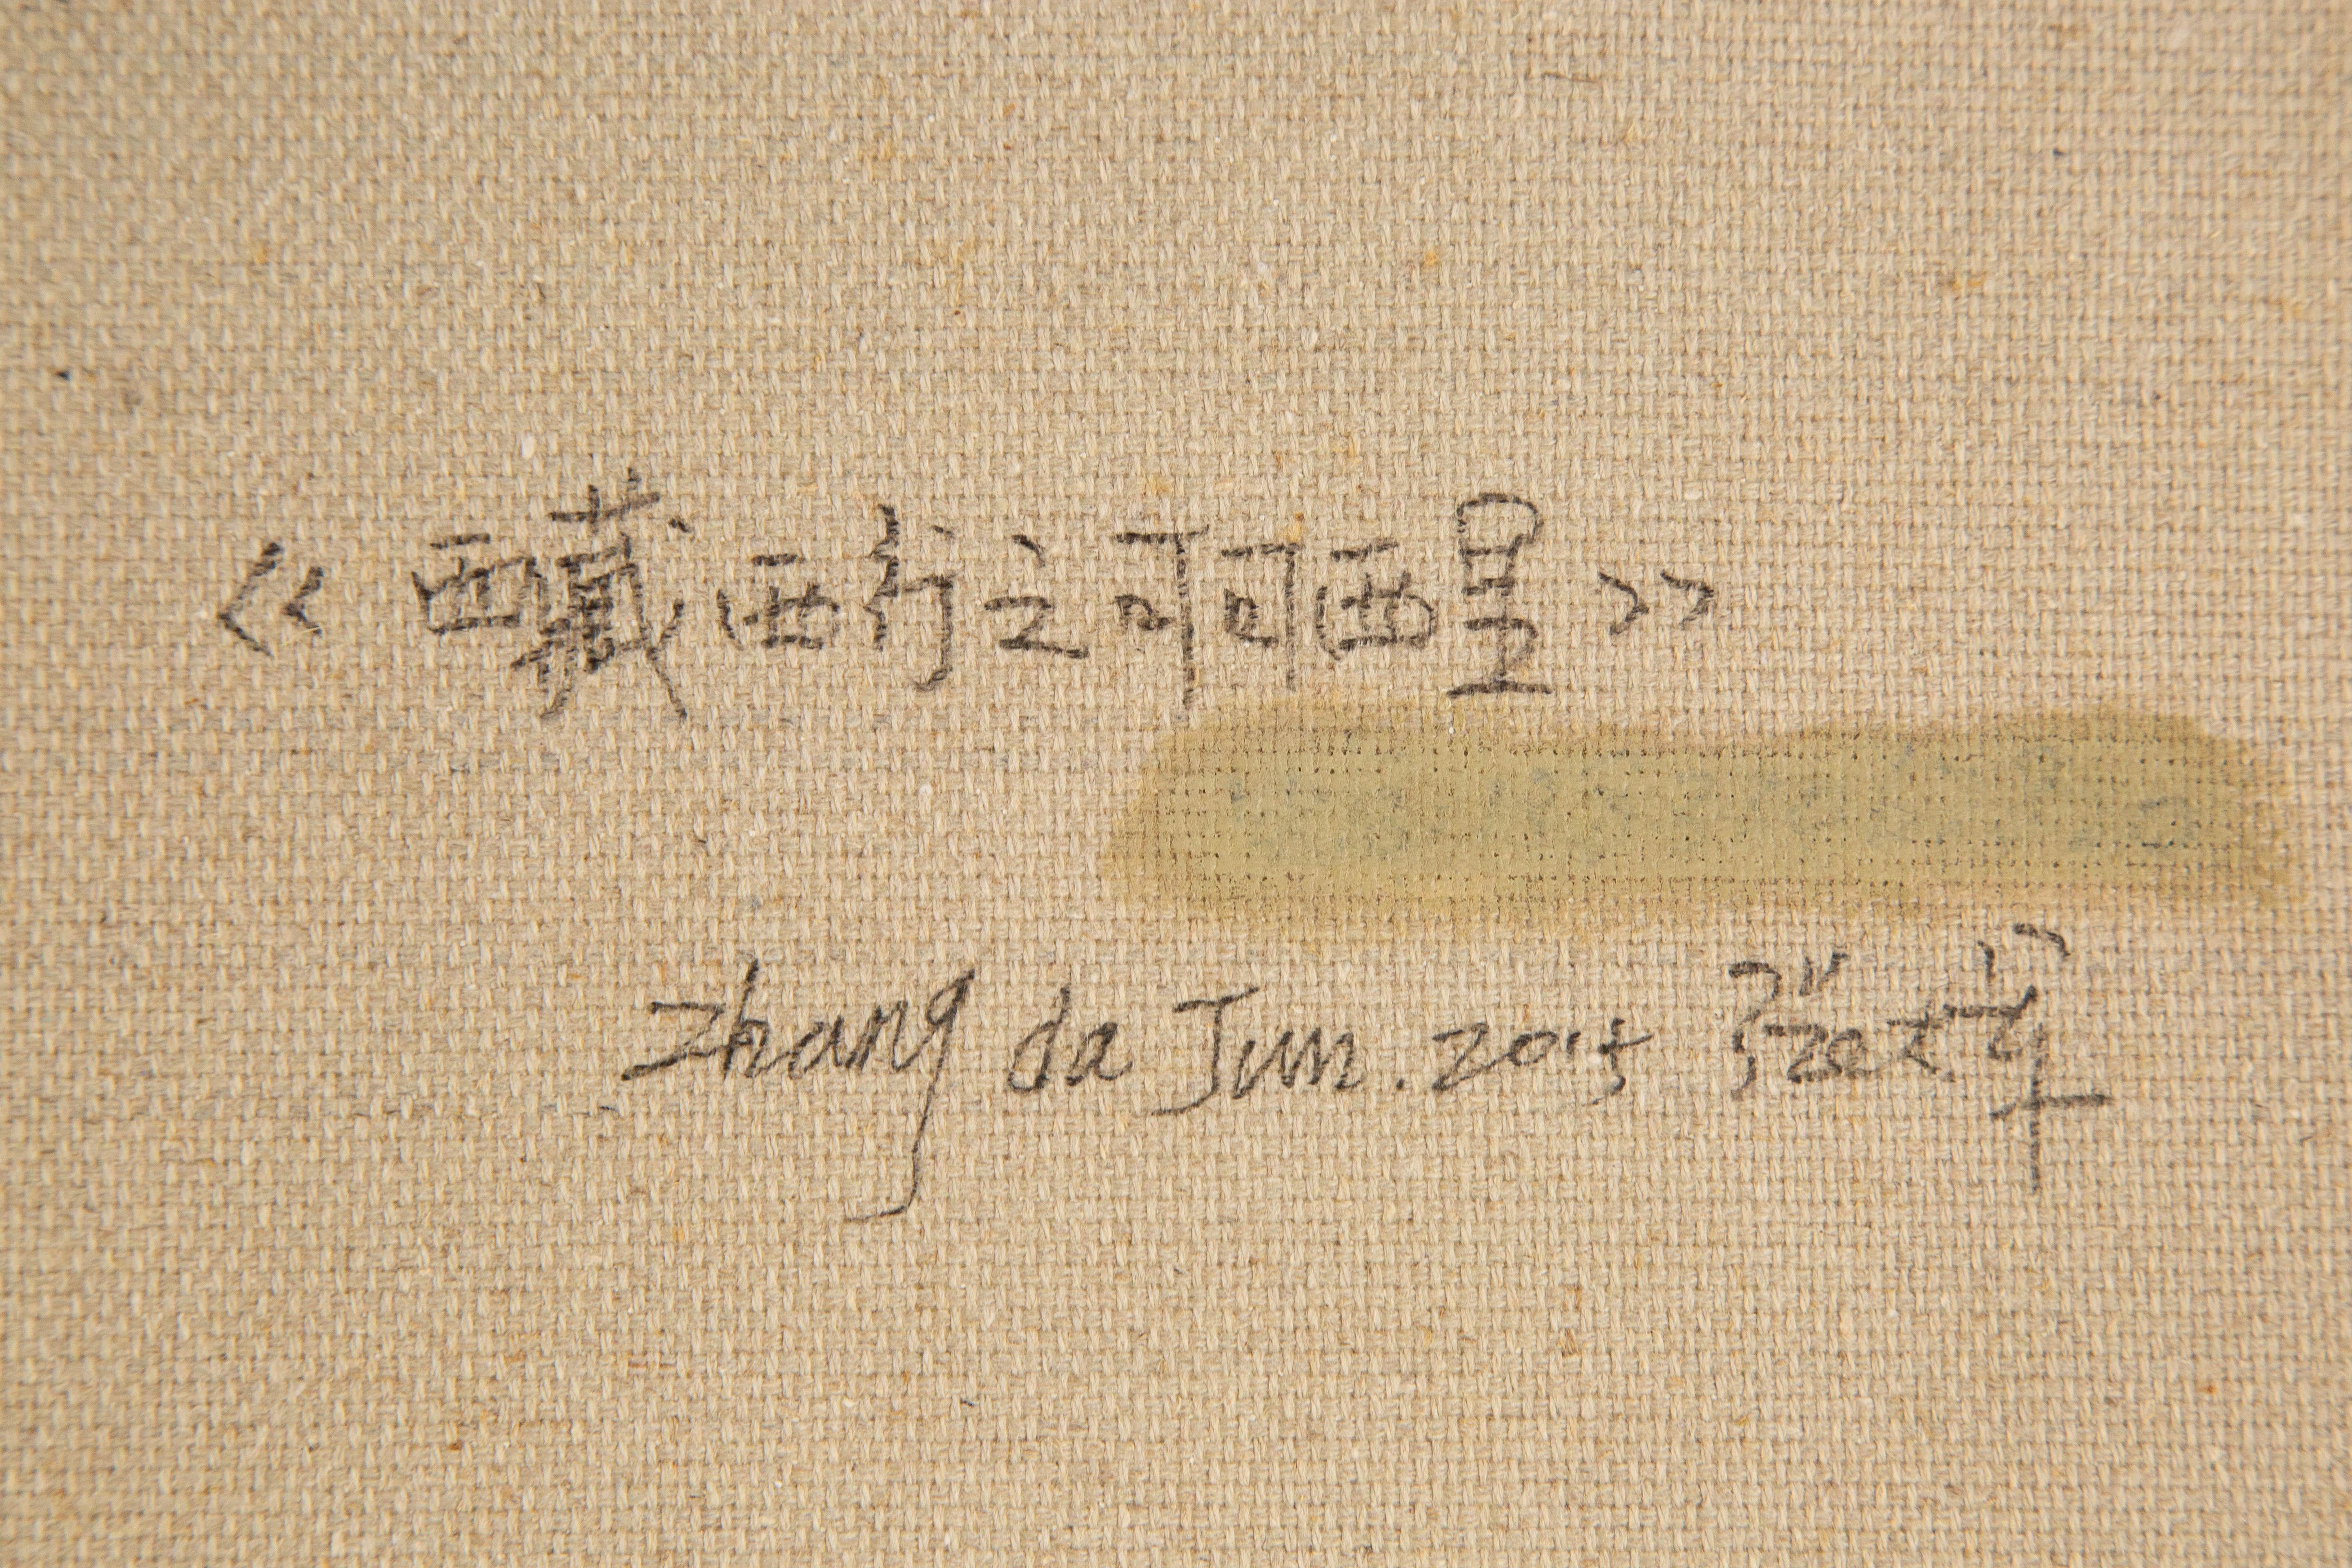 《西藏西行之可可西里》
Zhang da Jun. 2015 张大军